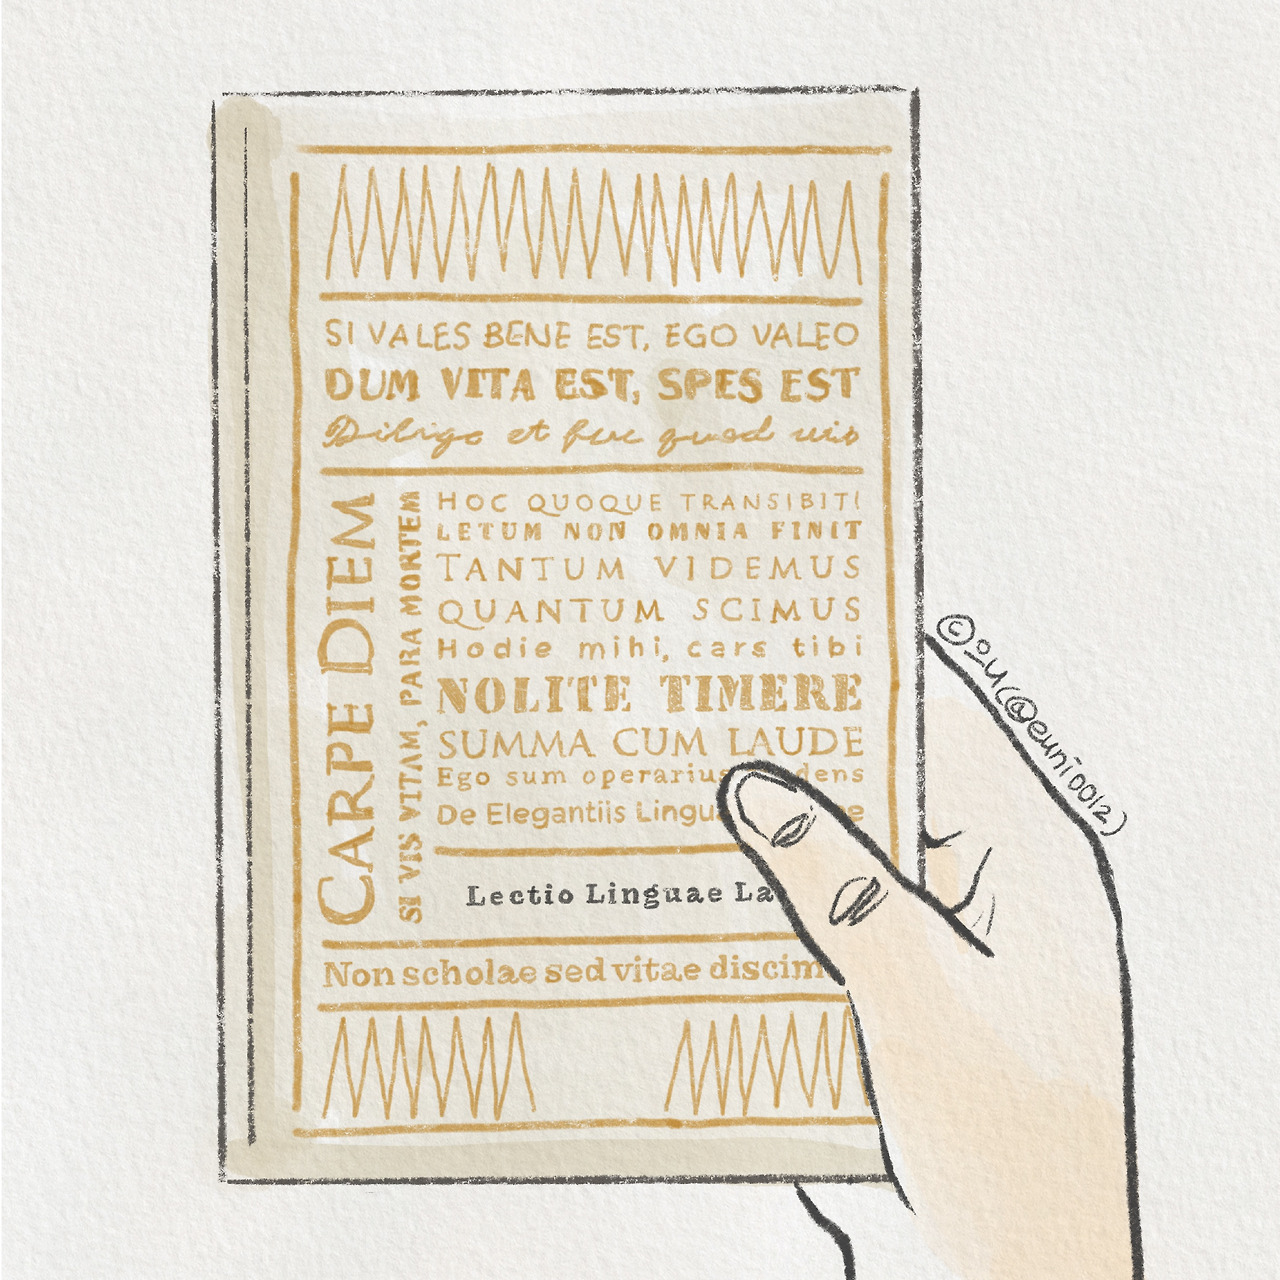 SI VALES BENE EST, EGO VALEO
DUM VITA EST, SPES EST
Diligo et fuc quod vis
CARPE DIEM
SI VIS VITAM, PARA MORTEM
HOC QUOQUE TRANSIBITI
LETUM NON OMNIA FINIT
TANTUM VIDEMUS
QUANTUM SCIMUS
Hodie mihi, cars tibi
NOLITE TIMERE
SUMMA CUM LAUDE
Ego sum operarius dens
De Elegantiis Lingu e
Lectio Linguae La
Non scholae sed vitae discim
©으니(@euni0012)